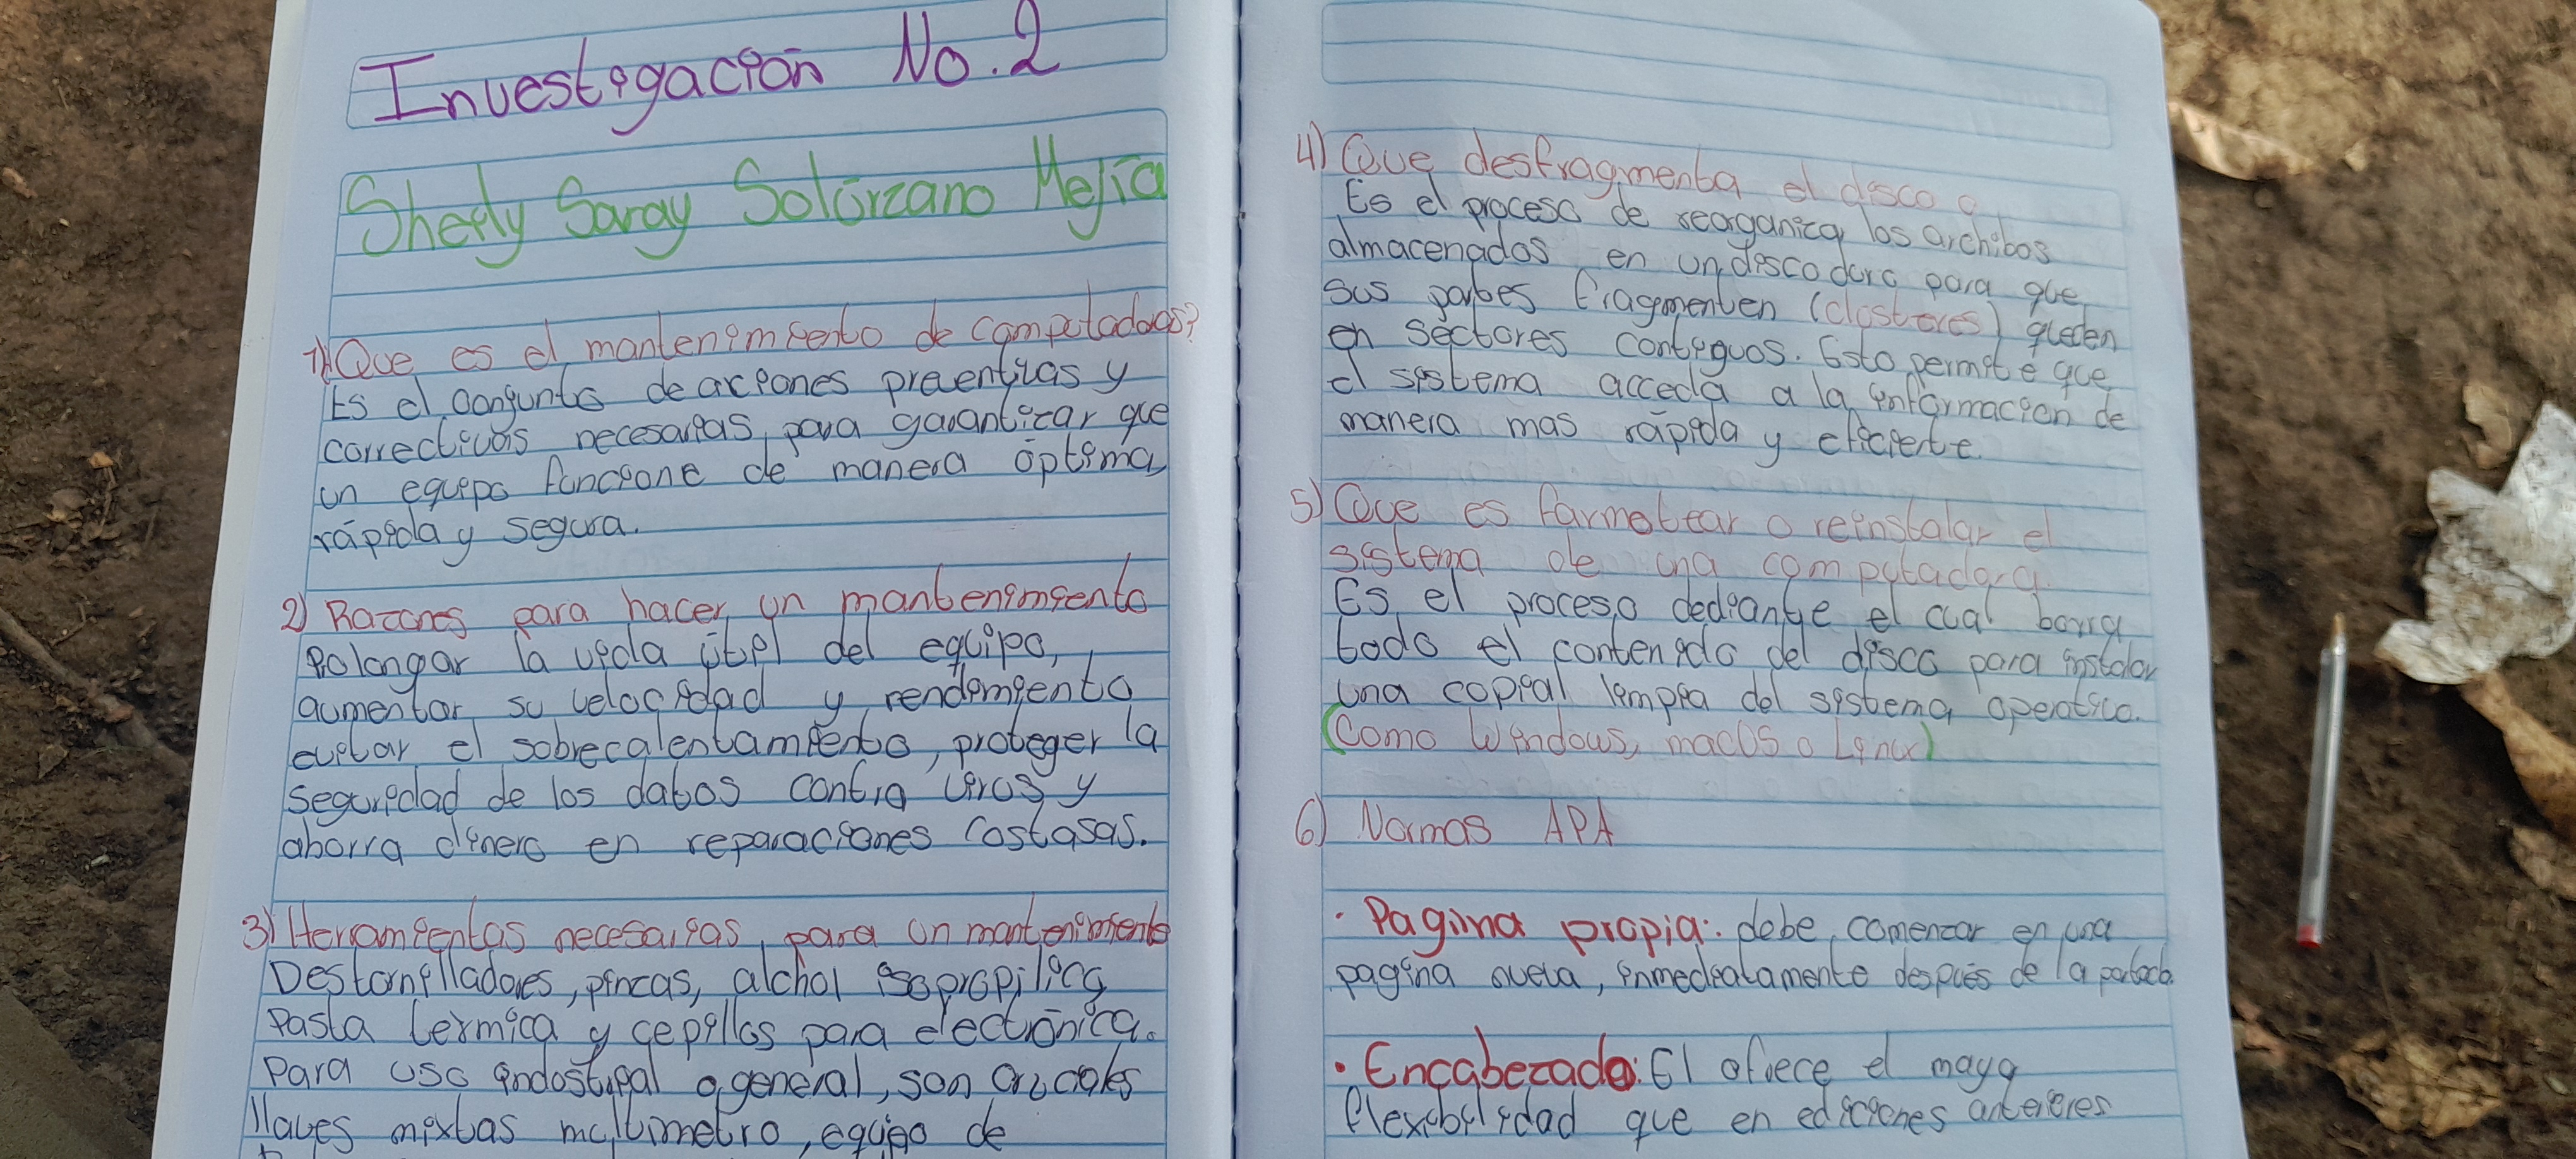 Investigación No. 2
Sherly Saray Solórzano Mejía
1) Que es el mantenimiento de computadoras?
Es el conjunto de acciones preventivas y
correctivas necesarias, para garantizar que
un equipo funcione de manera óptima,
rápida y segura.
2) Razones para hacer un mantenimiento
Polongar la vida útil del equipo,
aumentar su velocidad y rendimiento
evitar el sobrecalentamiento, proteger la
seguridad de los datos contra virus y
ahorra dinero en reparaciones costosas.
3) Herramientas necesarias, para un mantenimiento
Destornilladores, pinzas, alchol isopropilico
Pasta termica y cepillos para electrónica.
Para uso industrial o general, son cruciales
llaves mixtas multimetro, equipo de
4) Que desfragmenta el disco
Es el proceso de reorganiza los archibos
almacenados en un disco duro para que
sus partes fragmenten (closteres) queden
en sectores contiguos. Esto permite que
el sistema acceda a la información de
manera mas rápida y eficiente.
5) Que es farmotear o reinstalar el
sistema de una computadora.
Es el proceso dediante el cual borra
todo el contenido del disco para instalar
una copial limpia del sistema operativo.
(Como Windows, macOS o Linux)
6) Normas APA
• Pagina propia: debe comenzar en una
pagina nueva, inmediatamente después de la
• Encabezado: El ofrece el mayo
flexibilidad que en ediciones anteriores